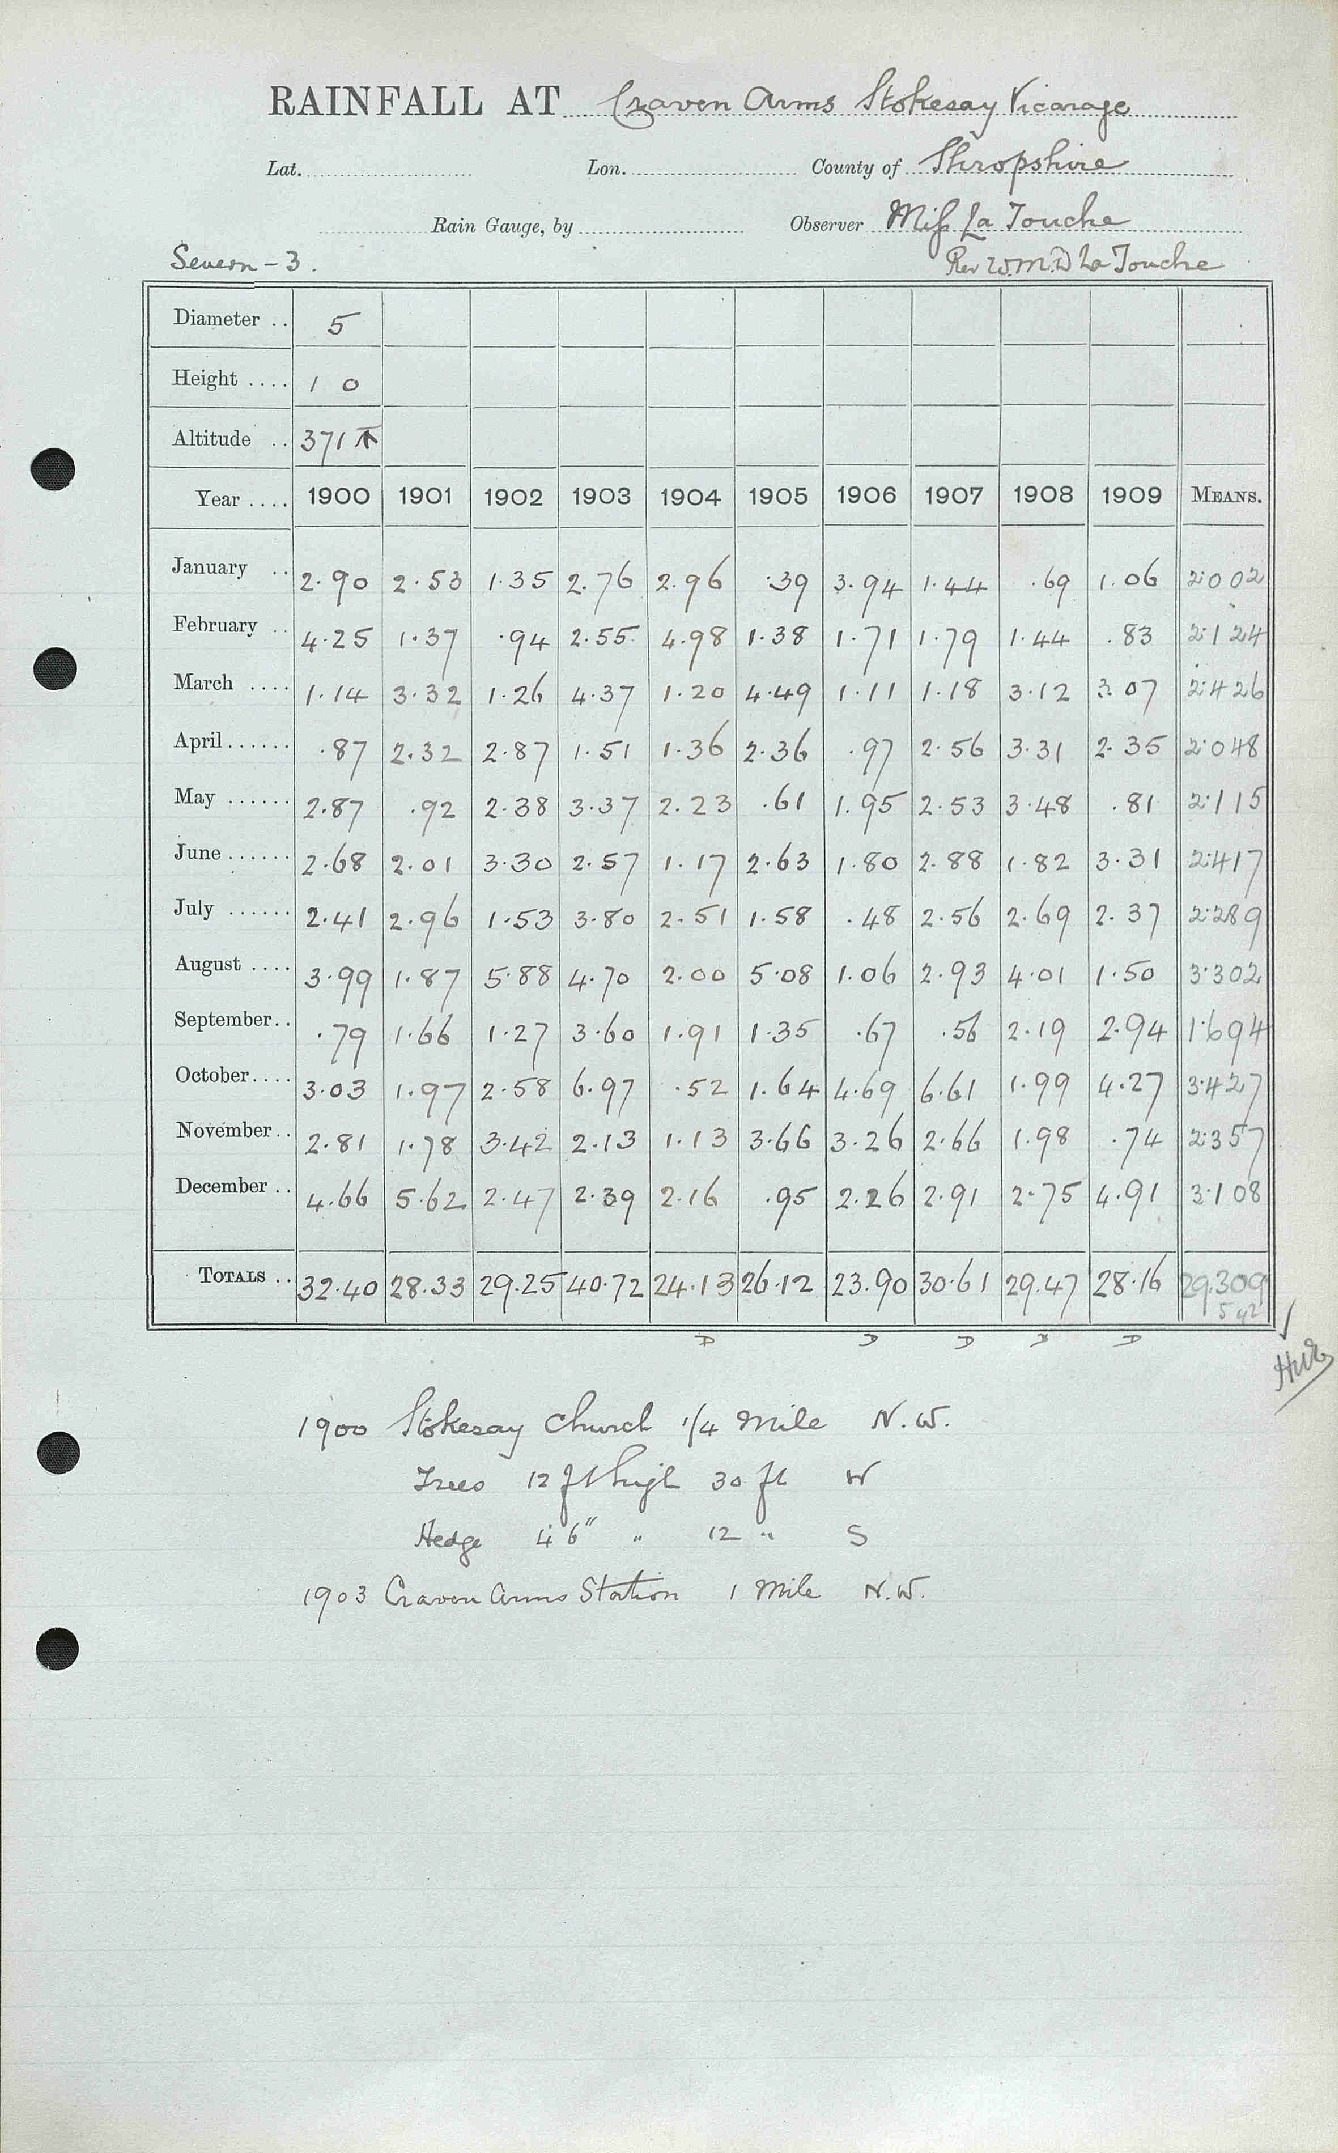 RAINFALL AT Craven Arms Stokesay Vicarage
Lat. Lon. County of Shropshire
Rain Gauge, by Observer Miss La Touche
Severn - 3. Rev W.M.D La Touche
Diameter .. 5
Height .... 1 0
Altitude .. 371 ↑
Year .... 1900 1901 1902 1903 1904 1905 1906 1907 1908 1909 MEANS.
January .. 2.90 2.53 1.35 2.76 2.96 .39 3.94 1.44 .69 1.06 2.002
February .. 4.25 1.37 .94 2.55 4.98 1.38 1.71 1.79 1.44 .83 2.124
March .... 1.14 3.32 1.26 4.37 1.20 4.49 1.11 1.18 3.12 3.07 2.426
April...... .87 2.32 2.87 1.51 1.36 2.36 .97 2.56 3.31 2.35 2.048
May ...... 2.87 .92 2.38 3.37 2.23 .61 1.95 2.53 3.48 .81 2.115
June...... 2.68 2.01 3.30 2.57 1.17 2.63 1.80 2.88 1.82 3.31 2.417
July ...... 2.41 2.96 1.53 3.80 2.51 1.58 .48 2.56 2.69 2.37 2.289
August .... 3.99 1.87 5.88 4.70 2.00 5.08 1.06 2.93 4.01 1.50 3.302
September.. .79 1.66 1.27 3.60 1.91 1.35 .67 .56 2.19 2.94 1.694
October.... 3.03 1.97 2.58 6.97 .52 1.64 4.69 6.61 1.99 4.27 3.427
November.. 2.81 1.78 3.42 2.13 1.13 3.66 3.26 2.66 1.98 .74 2.357
December .. 4.66 5.62 2.47 2.39 2.16 .95 2.26 2.91 2.75 4.91 3.108
TOTALS .. 32.40 28.33 29.25 40.72 24.13 26.12 23.90 30.61 29.47 28.16 29.309
542
D D D D D
1900 Stokesay Church 1/4 Mile N.W.
Trees 12 ft high 30 ft W
Hedge 4'6" " 12 " S
1903 Craven Arms Station 1 Mile N.W.